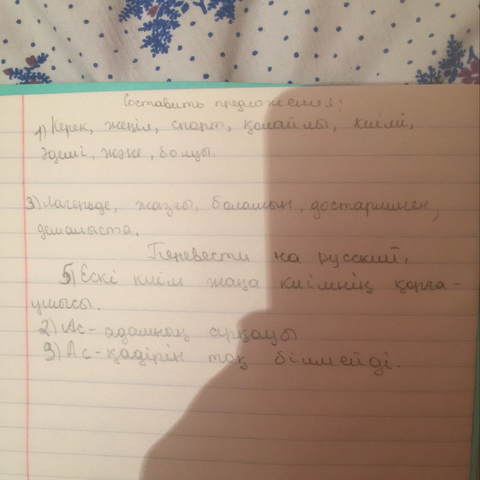 Составить предложения:
1) Керек, жеңіл, спорт, қолайлы, киімі,
әдемі, және, болуы.
3) Лагерьде, жазғы, боламын, достариммен,
демалыста.
Перевести на русский.
5) Ескі киім жаңа киімнің қорға-
ушысы.
2) Ас - адамның арқауы
3) Ас - қадірін тоқ білмейді.